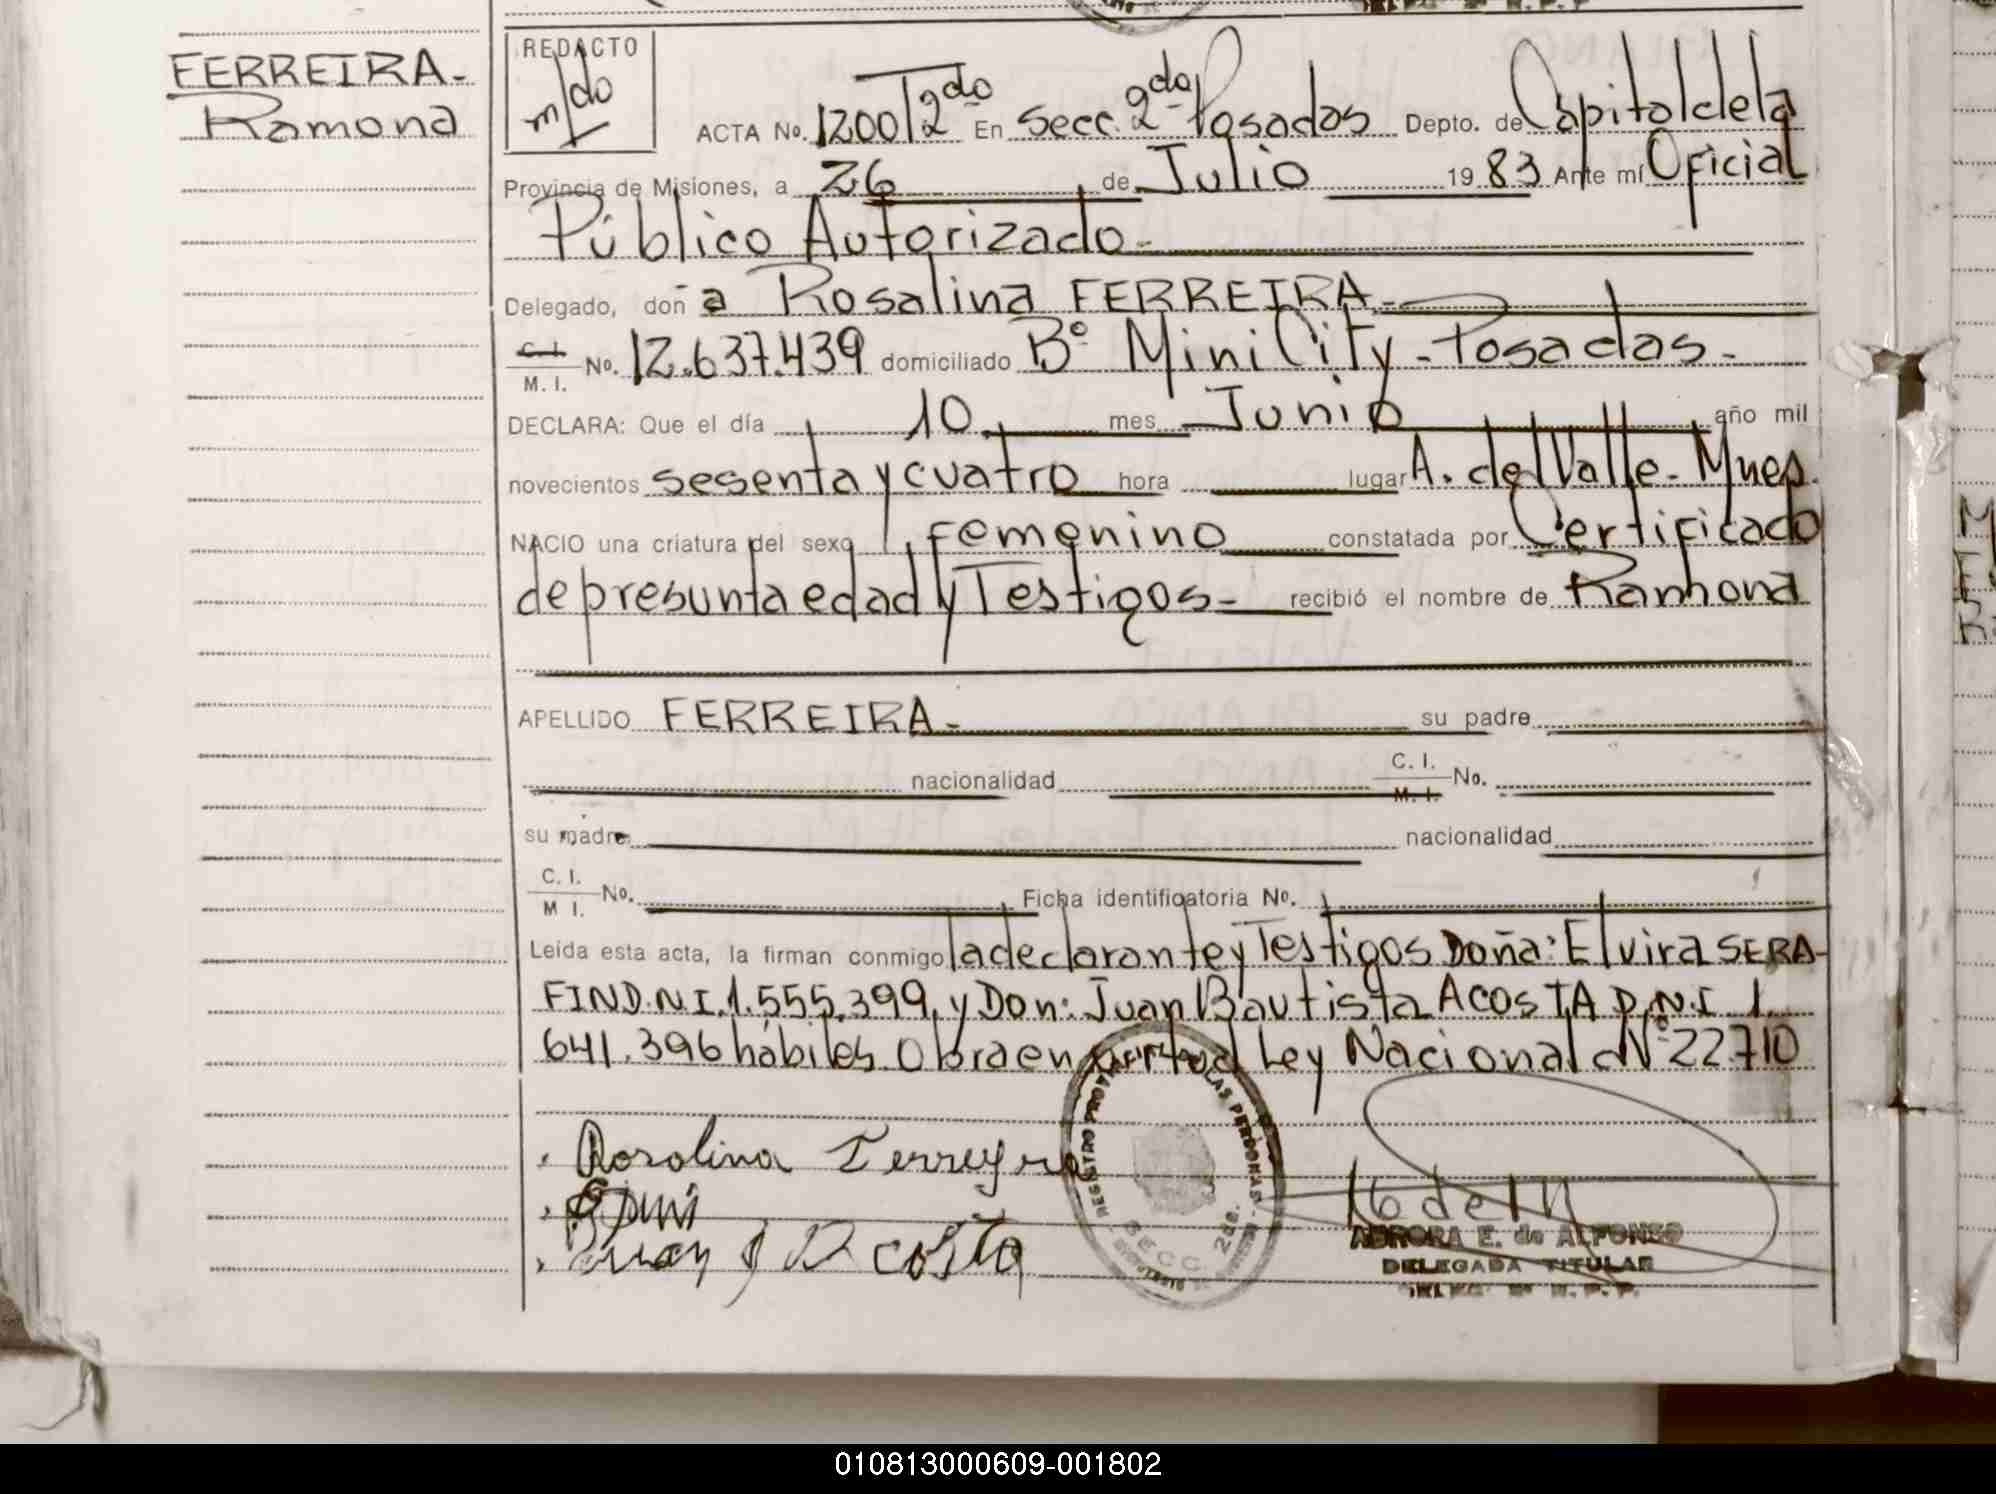 FERREIRA-
Ramona
REDACTO
m/do
ACTA No. 1200 T 2do En Secc. 2da Posadas Depto. de Capital de la
Provincia de Misiones, a 26 de Julio 1983 Ante mí Oficial
Público Autorizado-
Delegado, doña Rosalina FERREIRA-
C. I. M. I. No. 12.637.439 domiciliado Bº Mini City - Posadas-
DECLARA: Que el día 10 mes Junio año mil
novecientos sesenta y cuatro hora lugar A. del Valle- Mnes.
NACIO una criatura del sexo femenino constatada por Certificado
de presunta edad y Testigos- recibió el nombre de Ramona
APELLIDO FERREIRA- su padre
nacionalidad C. I. M. I. No.
su madre nacionalidad
C. I. M I. No. Ficha identificatoria No.
Leída esta acta, la firman conmigo la declarante y Testigos Doña: Elvira SERA-
FIN D.N.I. 1.555.399, y Don: Juan Bautista ACOSTA D.N.I 1.
641.396 hábiles. Obra en virtud Ley Nacional Nº 22710
Rosolina Ferreyra
Juan J D costa
REGISTRO PROV. DE LAS PERSONAS
SECC. 2da.
AURORA E. de ALFONSO
DELEGADA TITULAR
010813000609-001802